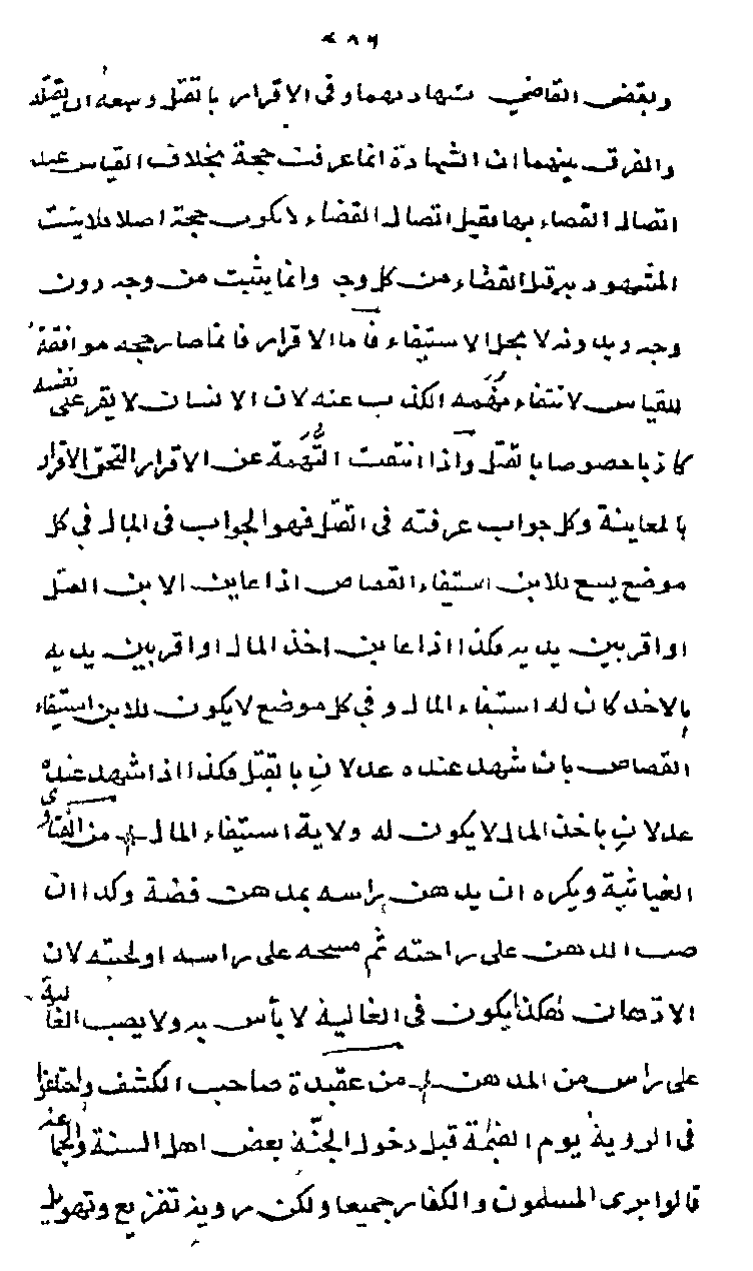 ٤٨٦
ويقضى القاضي بشهادتهما وفى الاقرار بالقتل وسعه ان يقتله
والفرق بينهما ان الشهادة انما عرفت حجة بخلاف القياس عند
اتصال القضاء بها فقبل اتصال القضاء لا يكون حجة اصلا فلا يثبت
المشهود به قبل القضاء من كل وجه وانما يثبت من وجه دون
وجه وبدونه لا يحل الاستيفاء فاما الاقرار فانما صار حجة موافقة
للقياس لانتفاء تهمة الكذب عنه لان الانسان لا يقر على نفسه
كاذبا خصوصا بالقتل واذا انتفت التهمة عن الاقرار التحق الاقرار
بالمعاينة وكل جواب عرفته فى القتل فهو الجواب فى المال فى كل
موضع يسع للابن استيفاء القصاص اذا عاين الابن القتل
او اقر بين يديه فكذا اذا عاين اخذ المال او اقر بين يديه
بالاخذ كان له استيفاء المال وفى كل موضع لا يكون للابن استيفاء
القصاص بان شهد عنده عدلان بالقتل فكذا اذا شهد عنده
عدلان باخذ المال لا يكون له ولاية استيفاء المال من الفتاوى
الغياثية ويكره ان يدهن راسه بمدهن فضة وكذا ان
صب الدهن على راحته ثم مسحه على راسه او لحيته لان
الادهان هكذا يكون فى الغالية لا بأس به ولا يصب الغالية
على راس من المدهن من عقيدة صاحب الكشف واختلفوا
فى الروية يوم القيمة قبل دخول الجنة بعض اهل السنة والجماعة
قالوا يرى المسلمون والكفار جميعا ولكن روية تفزيع وتهويل